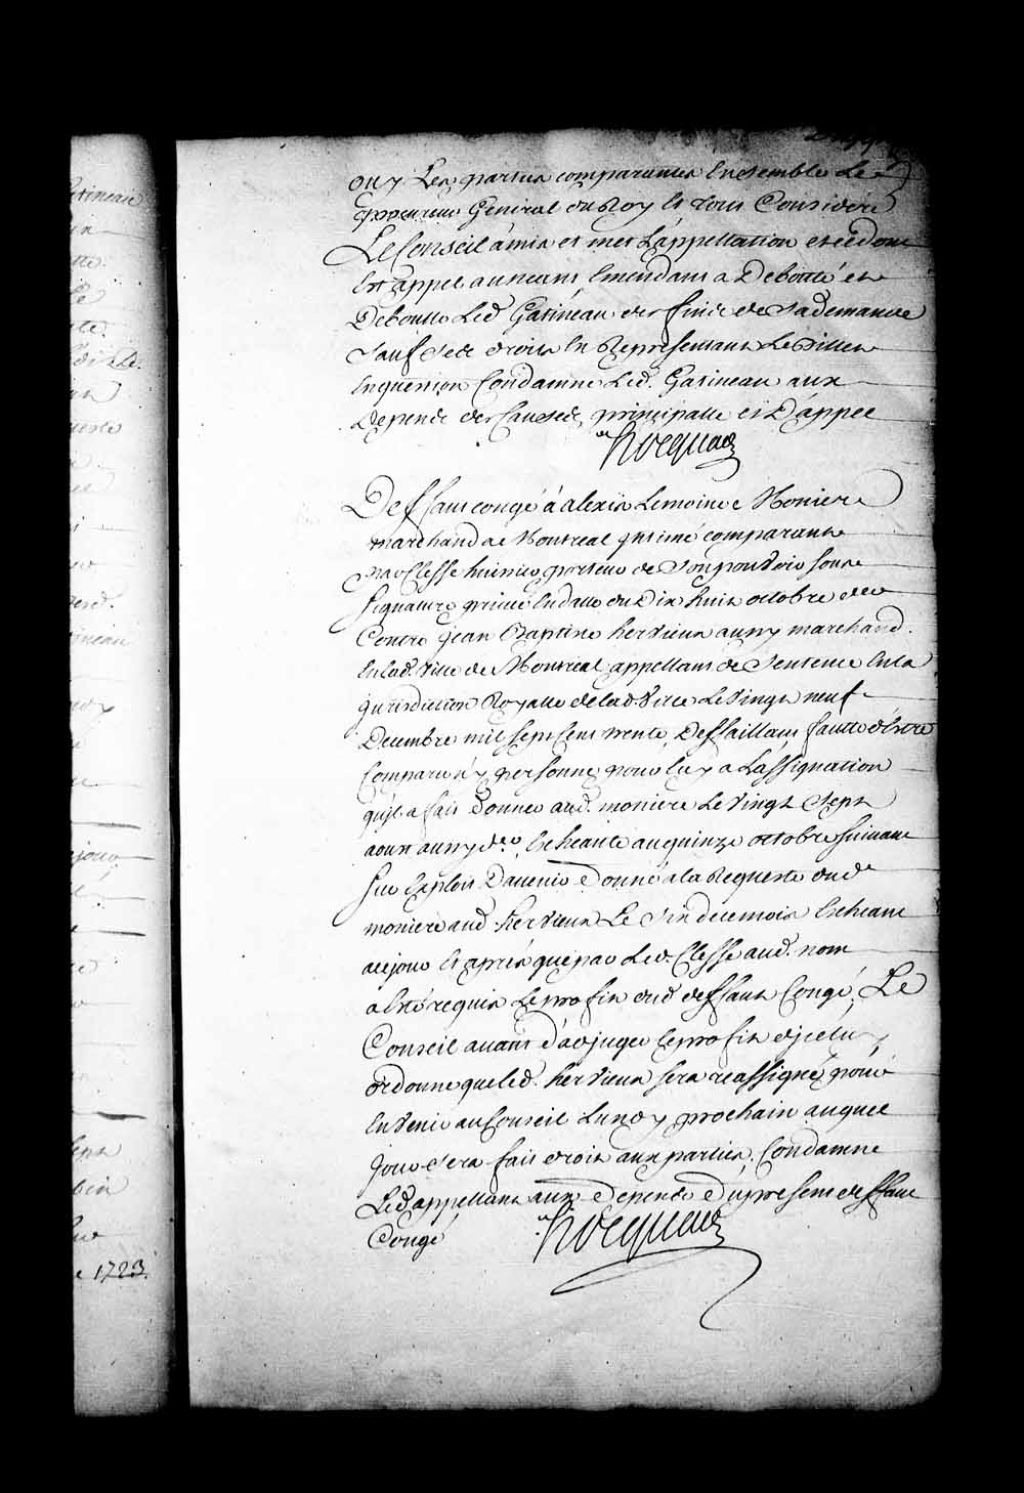 ouy Les parties comparantes Ensemble Le
procureur General du Roy Et tout Consideré
Le Conseil à mis et met L'appellation et ce dont
Est appel au neant Emendant a Debouté et
Deboutte Led Gatineau des fins de sa demande
sauf Ses droits En Representant Le Billet
En question Condamne Led. Gatineau aux
Depens des Causes principalle et D'appel
hocquart
Deffaut congé à alexis Lemoine Moniere
marchand a Montreal Intimé comparant
par Clesse huissier porteur de Son pouvoir sous
Signature privée En datte du Dix huit octobre der
Contre jean Baptiste hervieux aussy marchand
En lad. Ville de Montreal appellant de Sentence En la
jurisdiction Royalle de lad. Ville Le Vingt neuf
Decembre mil sept Cent trente, Deffaillant faute d'estre
Comparu n'y personne pour luy a L'assignation
qu'il a fait donner aud. moniere Le Vingt Sept
aoust aussy der. Echeante au quinze octobre suivant
Sur Exploit Davenir Donné a la Requeste dud
moniere aud. hervieux Le Six de ce mois Echeant
ce jour Et après que par Led. Clesse aud. nom
a Eté requis Le profit dud deffaut Congé; Le
Conseil avant d'adjuger Le profit d'jceluy
ordonne que led. hervieux sera reassigné pour
En Venir au Conseil Lundy prochain auquel
jour Sera fait droit aux parties. Condamne
Led appellant aux Depens Du present deffaut
Congé
hocquart
1723.